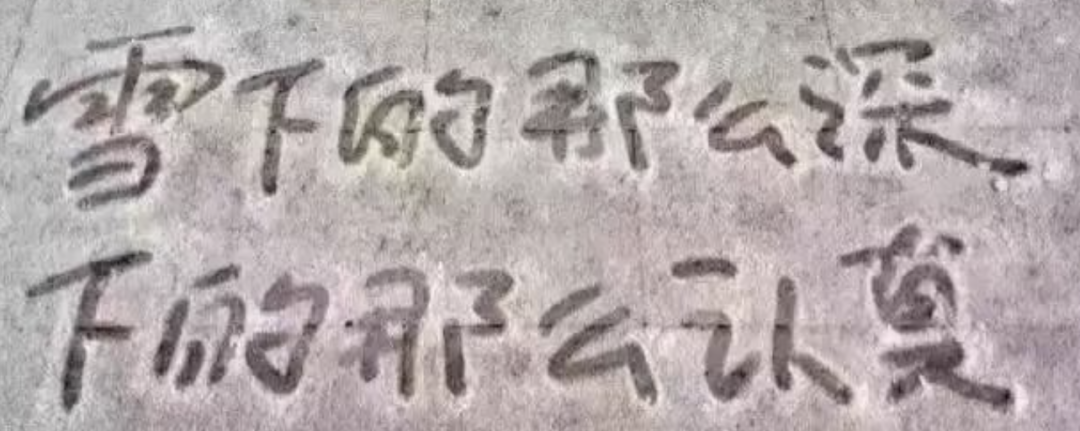 雪下的那么深
下的那么认真